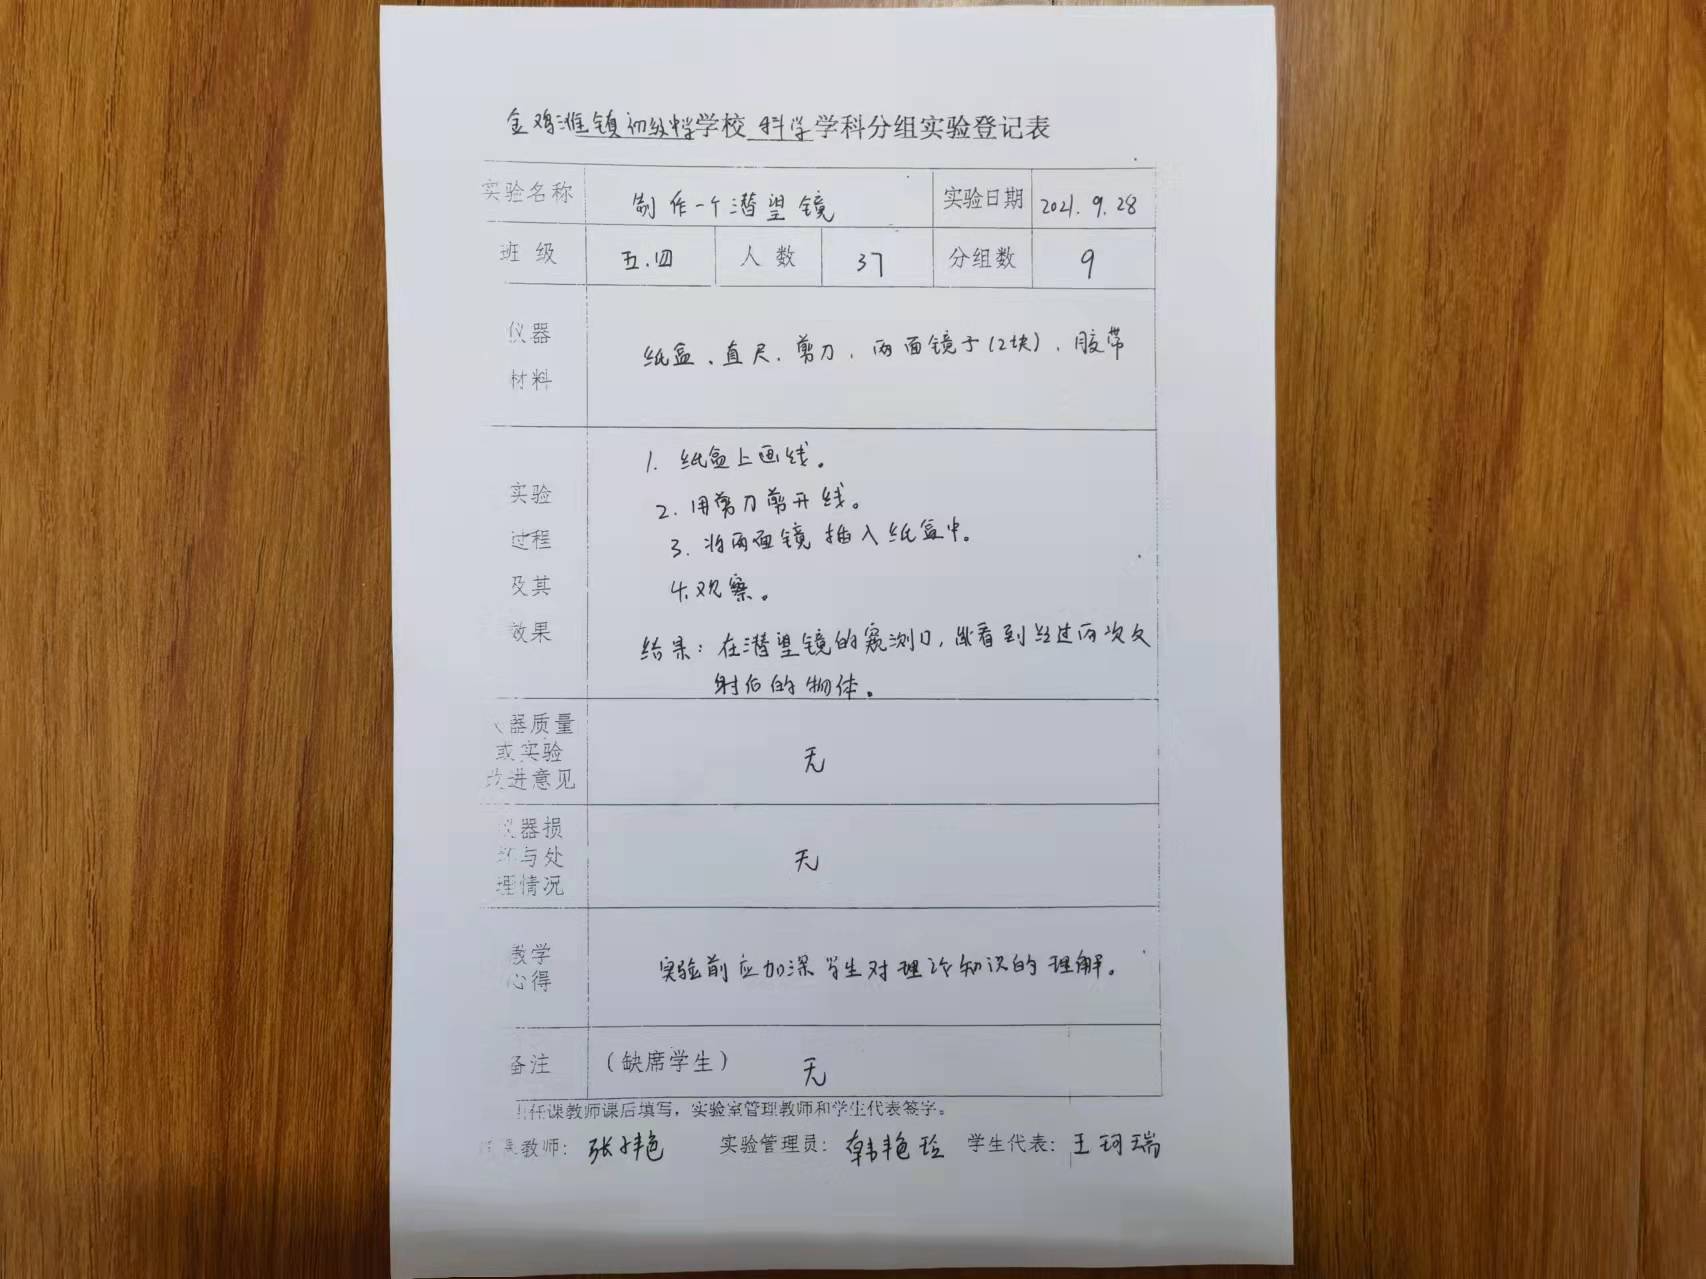 金鸡滩镇初级中学学校 科学学科分组实验登记表
实验名称 制作一个潜望镜 实验日期 2021.9.28
班 级 五.四 人 数 37 分组数 9
仪器
材料
纸盒、直尺、剪刀、两面镜子(2块)、胶带
实验
过程
及其
效果
1. 纸盒上画线。
2. 用剪刀剪开线。
3. 将两面镜插入纸盒中。
4. 观察。
结果：在潜望镜的窥测口，能看到经过两次反
射后的物体。
器质量
或实验
改进意见
无
仪器损
坏与处
理情况
无
教学
心得
实验前应加深学生对理论知识的理解。
备注 （缺席学生） 无
任课教师课后填写，实验室管理教师和学生代表签字。
教师： 张 艳 实验管理员： 韩艳玲 学生代表： 王珂瑞